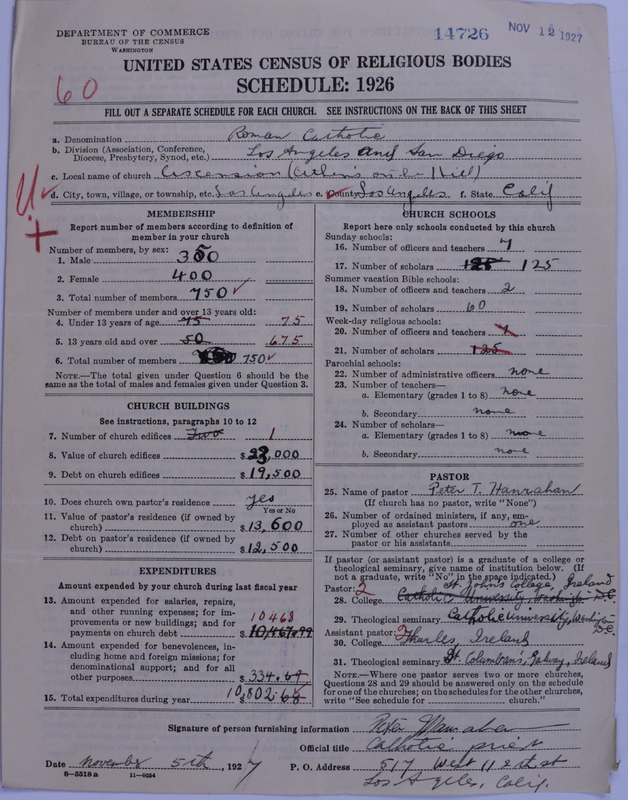 DEPARTMENT OF COMMERCE
BUREAU OF THE CENSUS
WASHINGTON
14726
NOV 12 1927
60
UNITED STATES CENSUS OF RELIGIOUS BODIES
SCHEDULE: 1926
FILL OUT A SEPARATE SCHEDULE FOR EACH CHURCH. SEE INSTRUCTIONS ON THE BACK OF THIS SHEET
a. Denomination Roman Catholic
b. Division (Association, Conference, Diocese, Presbytery, Synod, etc.) Los Angeles and San Diego
c. Local name of church Ascension
d. City, town, village, or township, etc. Los Angeles e. County Los Angeles f. State Calif
MEMBERSHIP
Report number of members according to definition of
member in your church
Number of members, by sex:
1. Male 350
2. Female 400
3. Total number of members 750
Number of members under and over 13 years old:
4. Under 13 years of age 75 75
5. 13 years old and over 50 675
6. Total number of members 750
NOTE.—The total given under Question 6 should be the
same as the total of males and females given under Question 3.
CHURCH BUILDINGS
See instructions, paragraphs 10 to 12
7. Number of church edifices Two 1
8. Value of church edifices $23,000
9. Debt on church edifices $19,500
10. Does church own pastor's residence yes
Yes or No
11. Value of pastor's residence (if owned by
church) $13,600
12. Debt on pastor's residence (if owned by
church) $12,500
EXPENDITURES
Amount expended by your church during last fiscal year
13. Amount expended for salaries, repairs,
and other running expenses; for im-
provements or new buildings; and for
payments on church debt $10,467.99 10468
14. Amount expended for benevolences, in-
cluding home and foreign missions; for
denominational support; and for all
other purposes $334.69
15. Total expenditures during year $10,802.68
CHURCH SCHOOLS
Report here only schools conducted by this church
Sunday schools:
16. Number of officers and teachers 7
17. Number of scholars 125 125
Summer vacation Bible schools:
18. Number of officers and teachers 2
19. Number of scholars 60
Week-day religious schools:
20. Number of officers and teachers
21. Number of scholars 125
Parochial schools:
22. Number of administrative officers none
23. Number of teachers—
a. Elementary (grades 1 to 8) none
b. Secondary none
24. Number of scholars—
a. Elementary (grades 1 to 8) none
b. Secondary none
PASTOR
25. Name of pastor Peter T. Hanrahan
(If church has no pastor, write "None")
26. Number of ordained ministers, if any, em-
ployed as assistant pastors one
27. Number of other churches served by the
pastor or his assistants
If pastor (or assistant pastor) is a graduate of a college or
theological seminary, give name of institution below. (If
not a graduate, write "No" in the space indicated.)
Pastor: 2 St. Johns College, Ireland
28. College Catholic University, Washington D.C.
29. Theological seminary Catholic University, Washington D.C.
Assistant pastor: 2
30. College Thurles, Ireland
31. Theological seminary St. Columbans, Galway, Ireland
NOTE.—Where one pastor serves two or more churches,
Questions 28 and 29 should be answered only on the schedule
for one of the churches; on the schedules for the other churches,
write "See schedule for church."
Signature of person furnishing information Peter Hanrahan
Official title Catholic priest
Date November 5th, 1927 P. O. Address 517 West 112th st
8—5518 a 11—9054 Los Angeles, Calif.